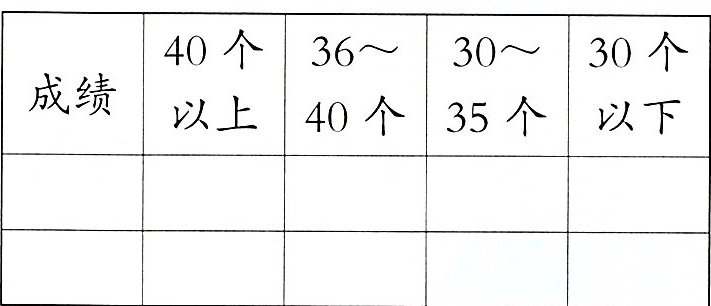 成绩
40 个
以上
36～
40 个
30～
35 个
30 个
以下